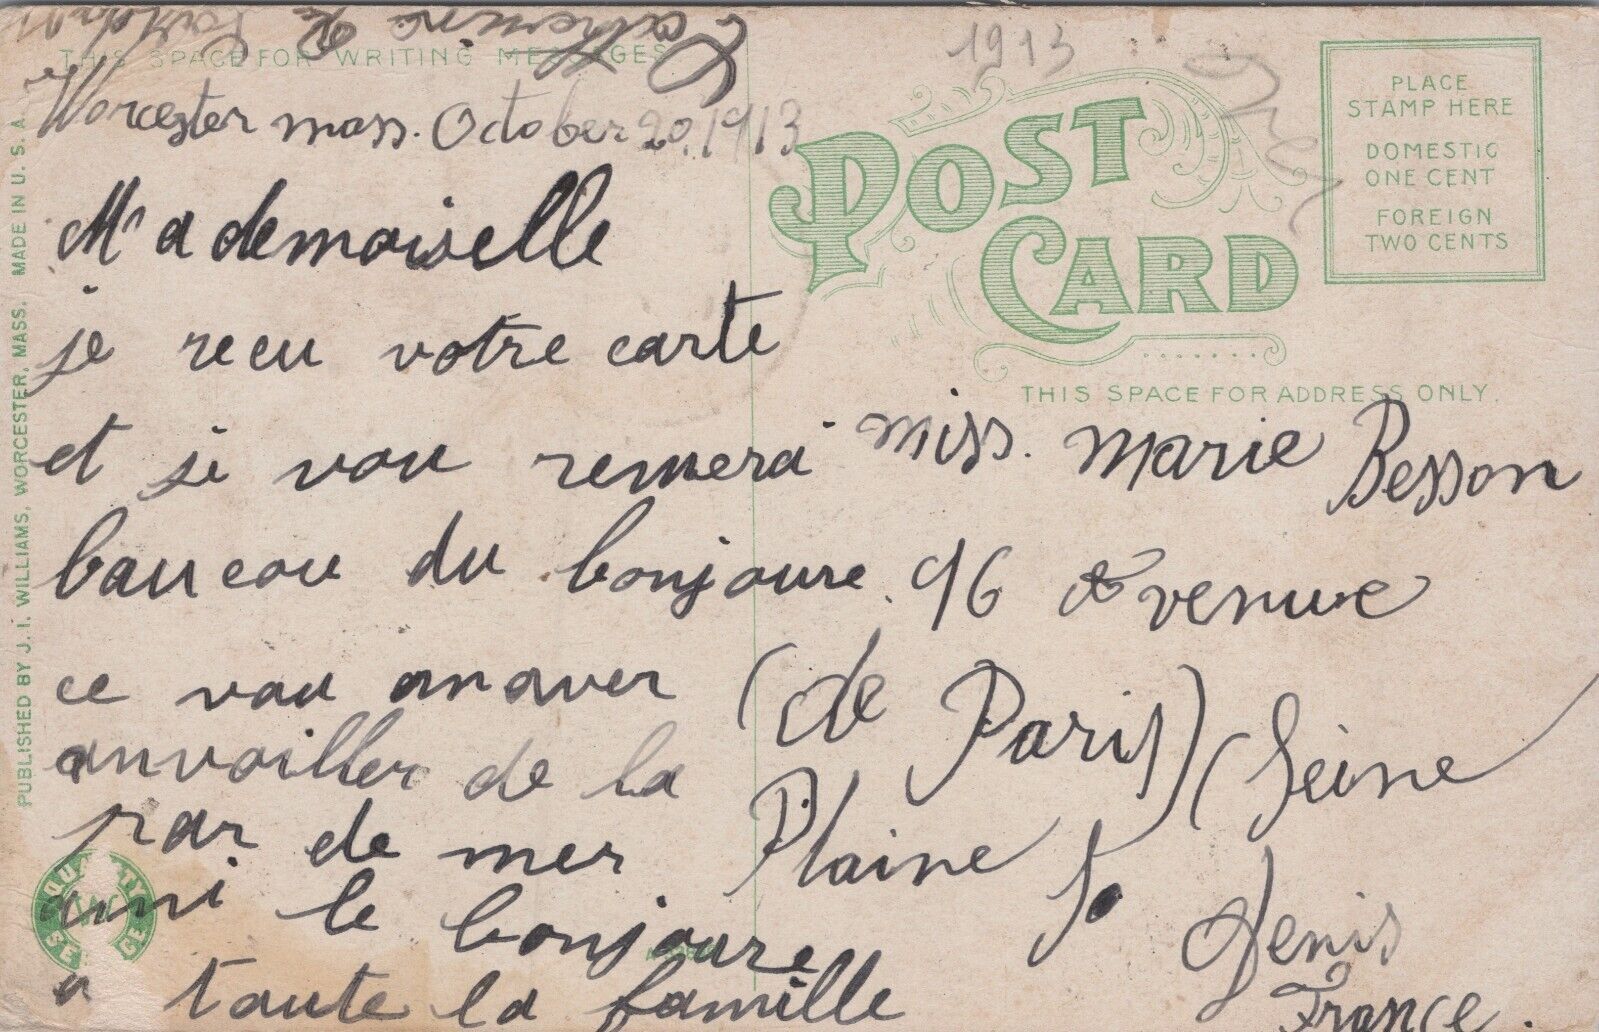 THIS SPACE FOR WRITING MESSAGES
Worcester mass. October 20, 1913
M'ademoiselle
je recu votre carte
et je vou remera
baucou du bonjoure
ce vou anaver
anvoiller de la
par de mer
ami le bonjoure
a toute la famille
1913
POST
CARD
PLACE
STAMP HERE
DOMESTIC
ONE CENT
FOREIGN
TWO CENTS
THIS SPACE FOR ADDRESS ONLY.
miss. marie Besson
96 Avenue
(de Paris) (Seine
Plaine St
Denis
France.
PUBLISHED BY J. I. WILLIAMS, WORCESTER, MASS. MADE IN U. S. A.